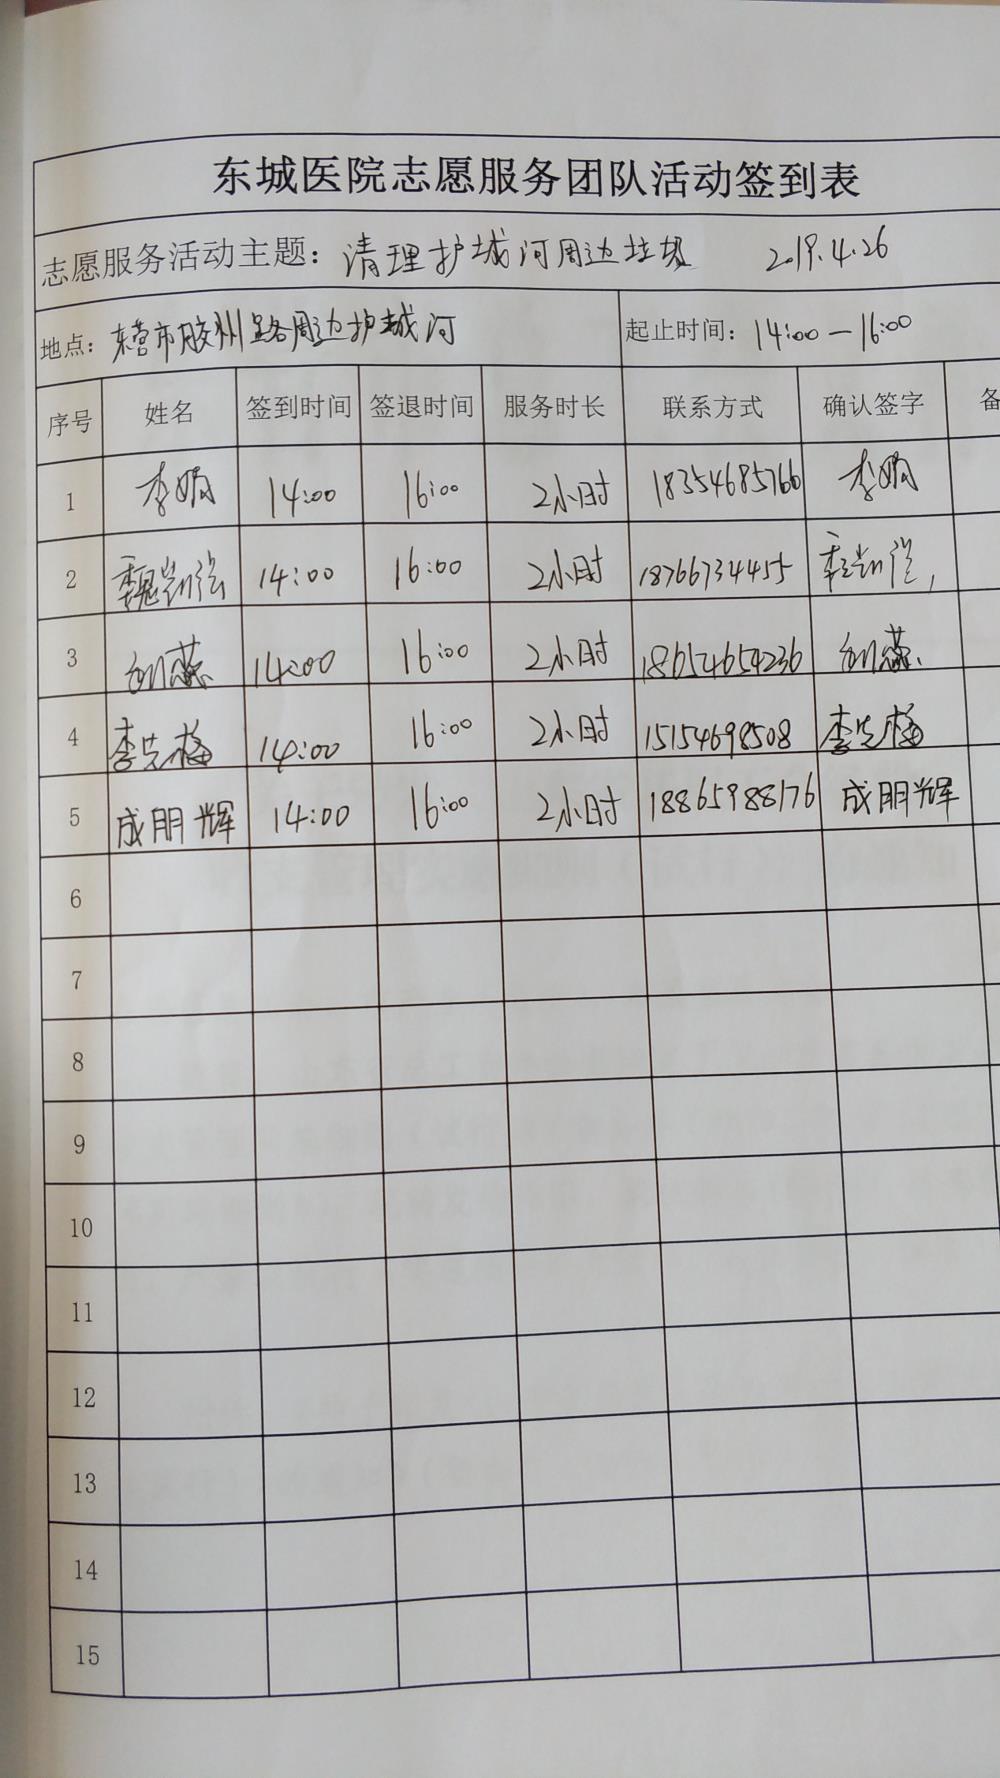 东城医院志愿服务团队活动签到表
志愿服务活动主题：清理护城河周边垃圾 2019.4.26
地点：东营市胶州路周边护城河 起止时间：14:00—16:00
序号 姓名 签到时间 签退时间 服务时长 联系方式 确认签字 备
1 李娟 14:00 16:00 2小时 18354685766 李娟
2 14:00 16:00 2小时 18766734455
3 刘燕 14:00 16:00 2小时 18654654236 刘燕
4 李先梅 14:00 16:00 2小时 15154698508 李先梅
5 成朋辉 14:00 16:00 2小时 18865988176 成朋辉
6
7
8
9
10
11
12
13
14
15